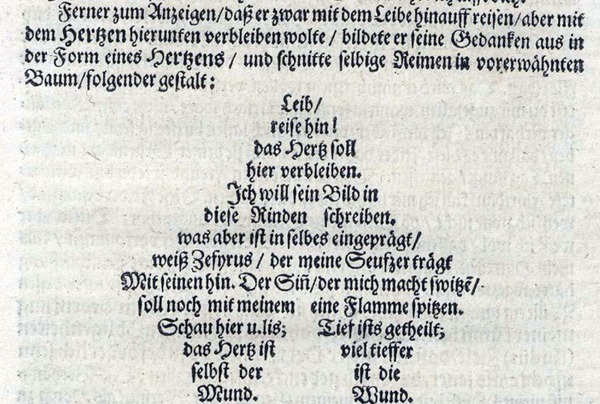 Ferner zum Anzeigen/ daß er zwar mit dem Leibe hinauff reisen/ aber mit
dem Hertzen hierunten verbleiben wolte / bildete er seine Gedanken aus in
der Form eines Hertzens / und schnitte selbige Reimen in vorerwähnten
Baum/ folgender gestalt:
Leib/
reise hin!
das Hertz soll
hier verbleiben.
Jch will sein Bild in
diese Rinden schreiben.
was aber ist in selbes eingeprägt/
weiß Zefyrus / der meine Seufzer trägt
Mit seinen hin. Der Siñ/ der mich macht switzẽ/
soll noch mit meinem eine Flamme spitzen.
Schau hier u. lis; Tief ists getheilt;
das Hertz ist viel tieffer
selbst der ist die
Mund. Wund.